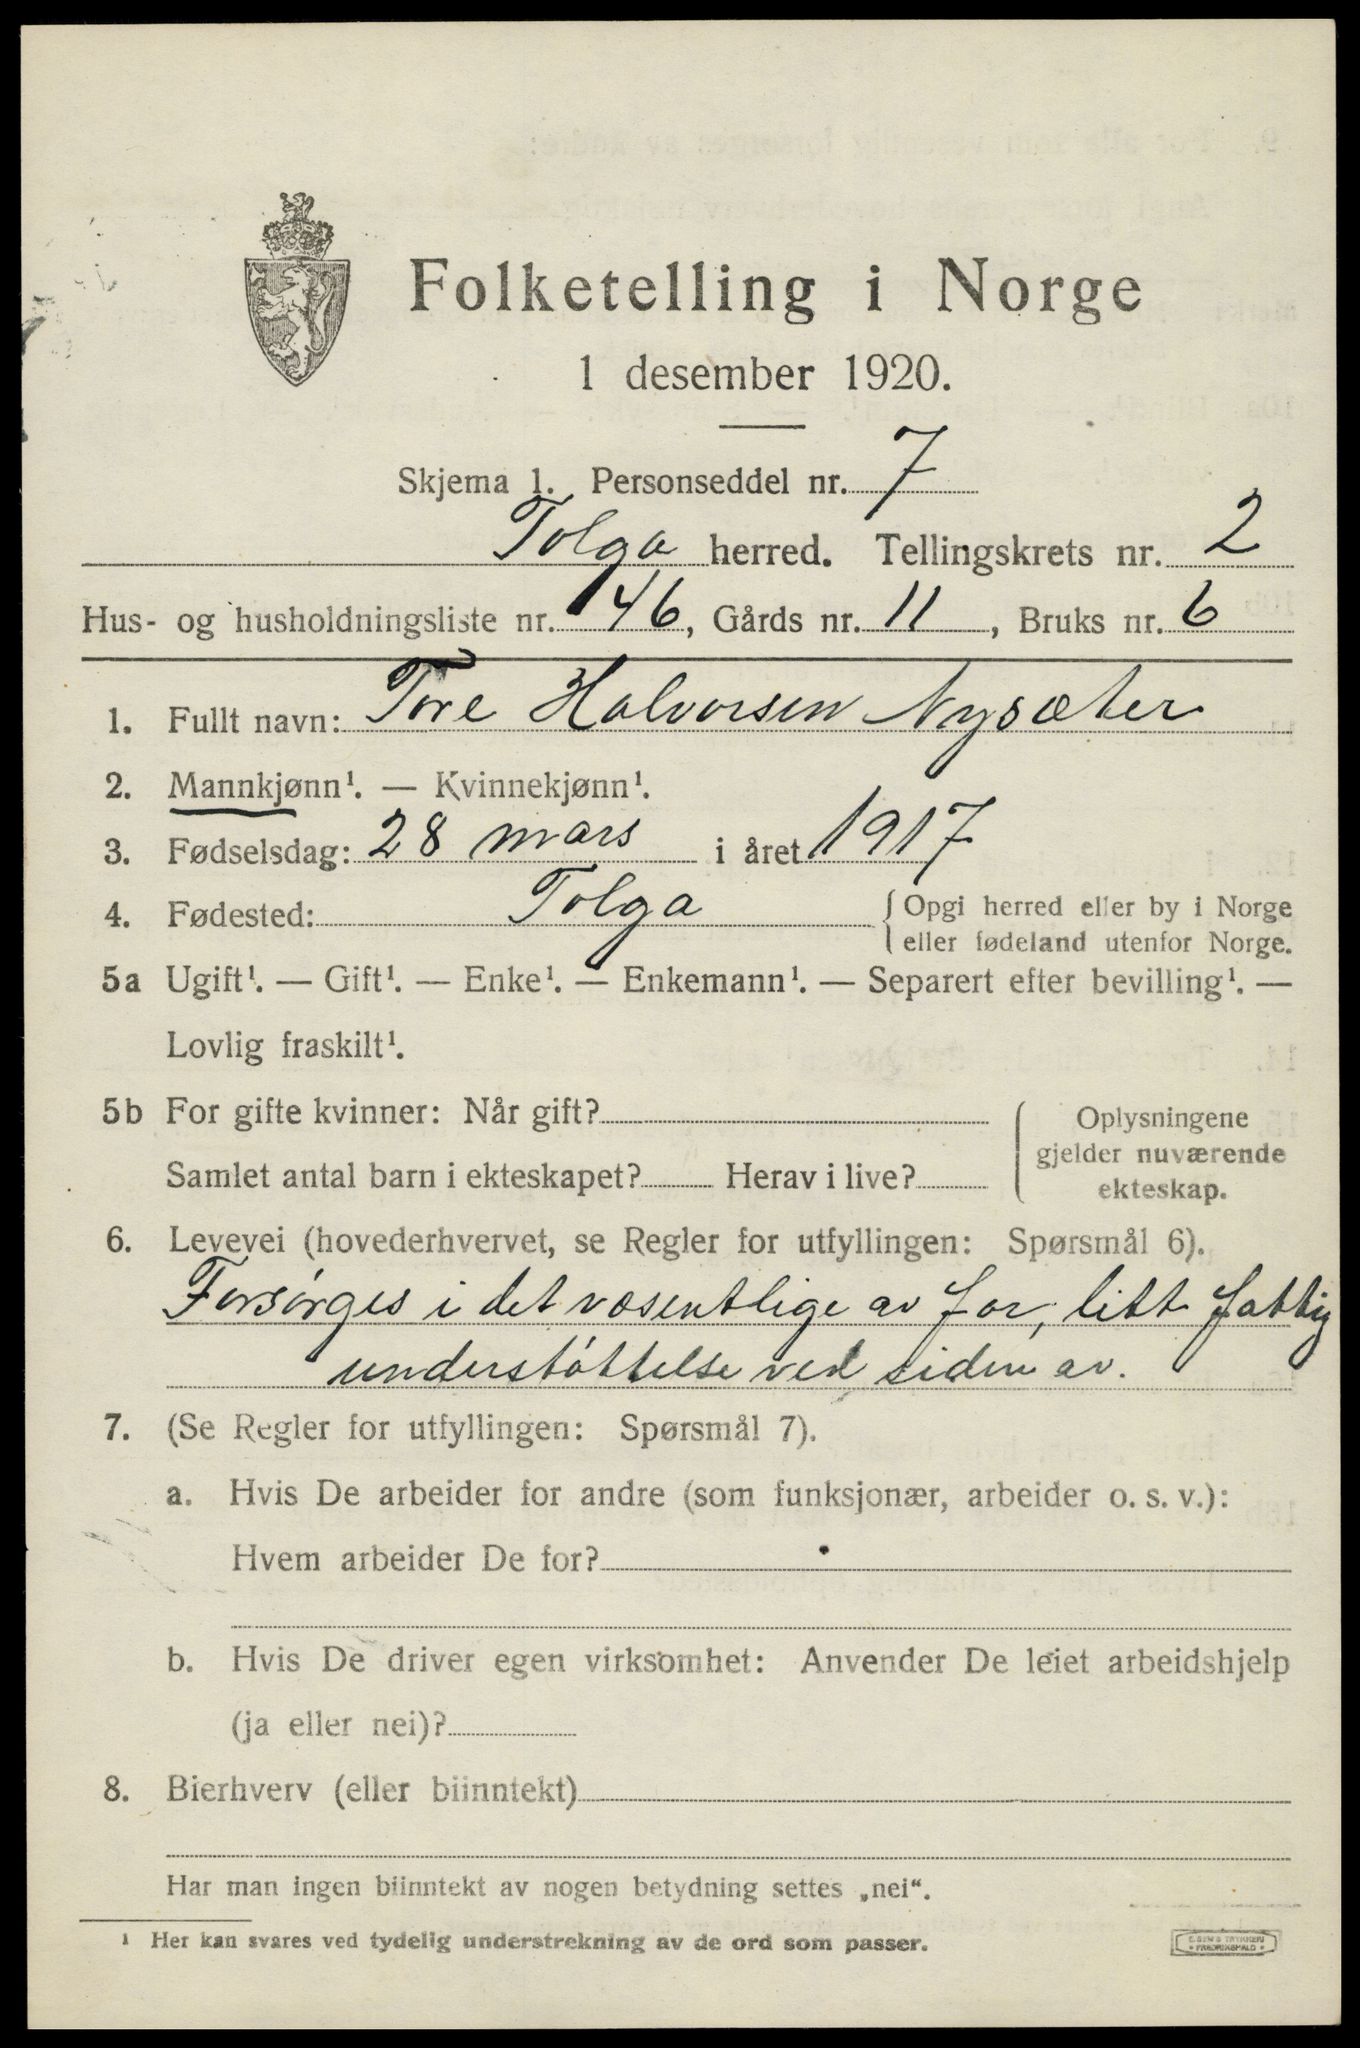 Folketelling i Norge
1 desember 1920.
Skjema 1. Personseddel nr. 7
Tolga herred. Tellingskrets nr. 2
Hus- og husholdningsliste nr. 46, Gårds nr. 11, Bruks nr. 6
1. Fullt navn: Tore Halvorsen Nysæter
2. Mannkjønn¹. — Kvinnekjønn¹.
3. Fødselsdag: 28 mars i året 1917
4. Fødested: Tolga { Opgi herred eller by i Norge
eller fødeland utenfor Norge.
5a Ugift¹. — Gift¹. — Enke¹. — Enkemann¹. — Separert efter bevilling¹. —
Lovlig fraskilt¹.
5b For gifte kvinner: Når gift? Oplysningene
gjelder nuværende
Samlet antal barn i ekteskapet? Herav i live? ekteskap.
6. Levevei (hovederhvervet, se Regler for utfyllingen: Spørsmål 6).
Forsørges i det væsentlige av far, litt fattig
understøttelse ved siden av.
7. (Se Regler for utfyllingen: Spørsmål 7).
a. Hvis De arbeider for andre (som funksjonær, arbeider o. s. v.):
Hvem arbeider De for?
b. Hvis De driver egen virksomhet: Anvender De leiet arbeidshjelp
(ja eller nei)?
8. Bierhverv (eller biinntekt)
Har man ingen biinntekt av nogen betydning settes „nei“.
¹ Her kan svares ved tydelig understrekning av de ord som passer.